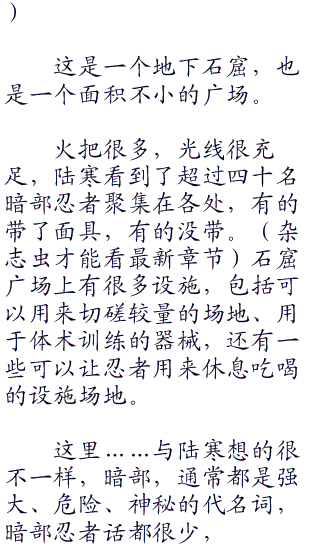 ）
这是一个地下石窟，也
是一个面积不小的广场。
火把很多，光线很充
足，陆寒看到了超过四十名
暗部忍者聚集在各处，有的
带了面具，有的没带。（杂
志虫才能看最新章节）石窟
广场上有很多设施，包括可
以用来切磋较量的场地、用
于体术训练的器械，还有一
些可以让忍者用来休息吃喝
的设施场地。
这里……与陆寒想的很
不一样，暗部，通常都是强
大、危险、神秘的代名词，
暗部忍者话都很少，